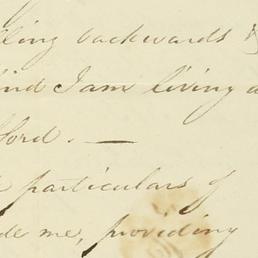 lling backwards &
kind I am living a
Lord. —
particulars of
de me, providing